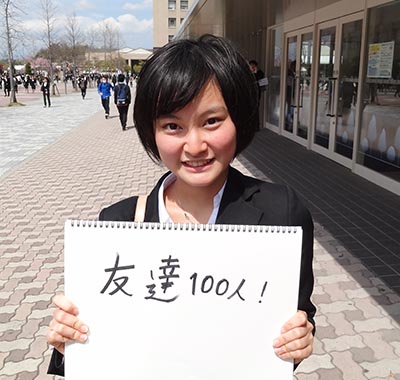 友達100人!